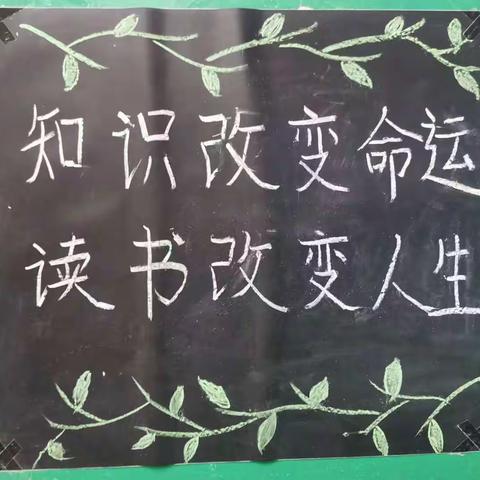 知识改变命运
读书改变人生